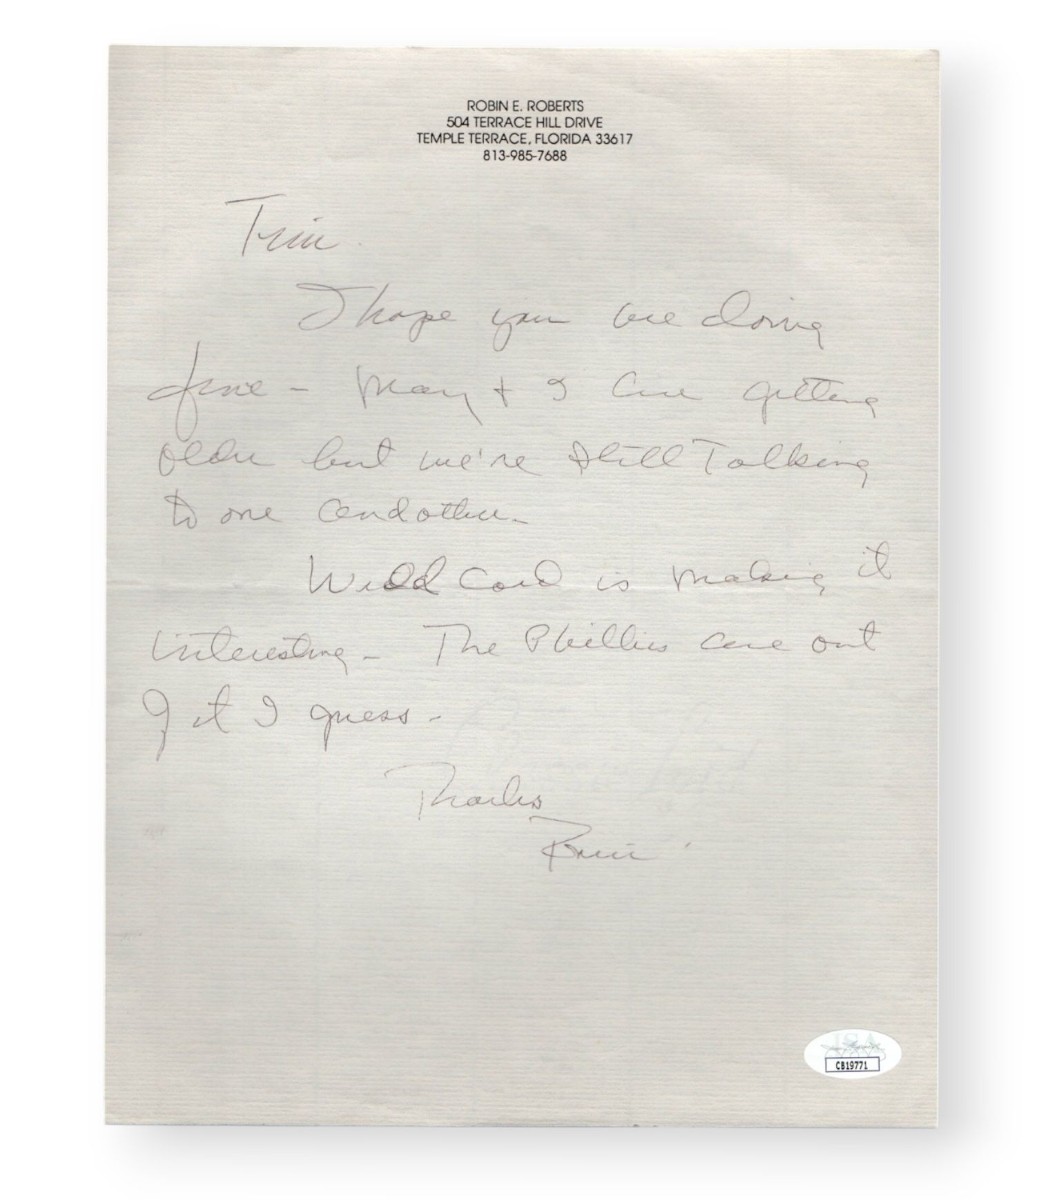 ROBIN E. ROBERTS
504 TERRACE HILL DRIVE
TEMPLE TERRACE, FLORIDA 33617
813-985-7688
I hope you are doing
fine - Mary + I are getting
older but we're still Talking
to one and other -
Wild Card is making it
interesting - The Phillies are out
of it I guess -
Thanks
Robin
CB19771